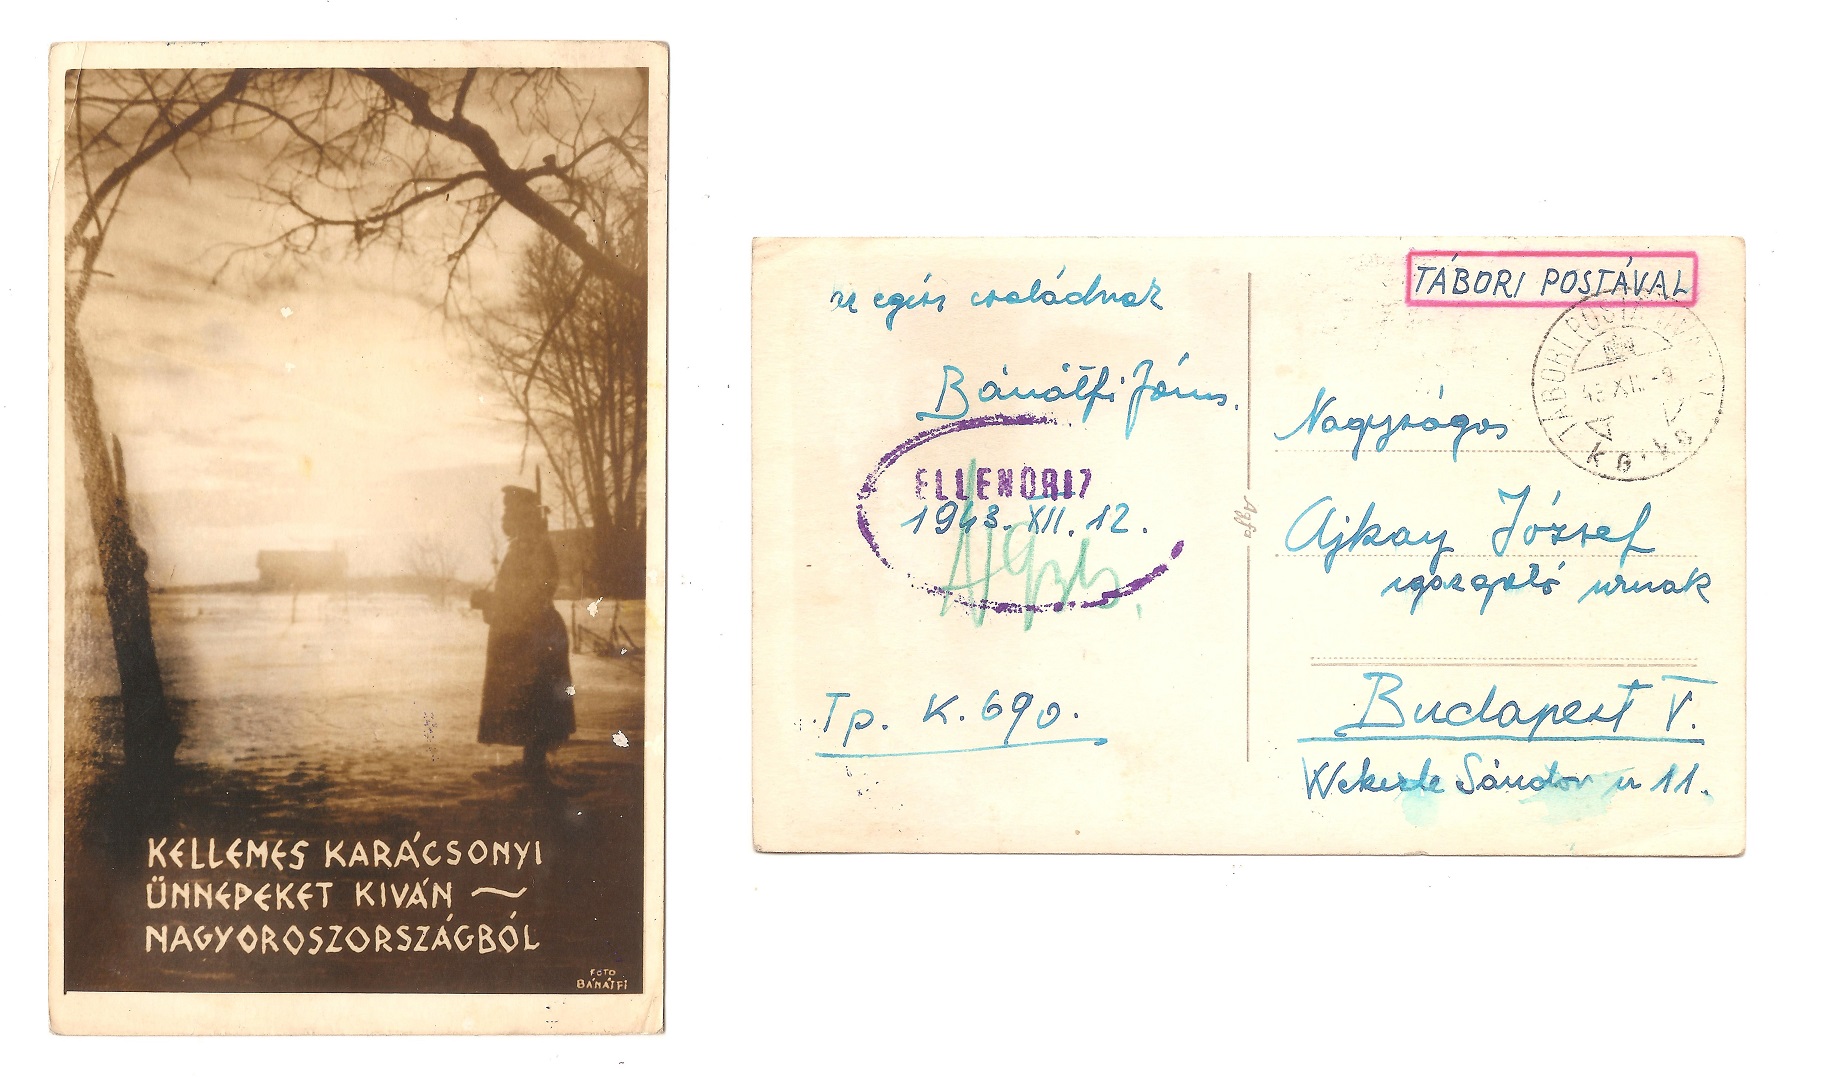 KELLEMES KARÁCSONYI
ÜNNEPEKET KIVÁN ~
NAGYOROSZORSZÁGBÓL
FOTO
BÁNÁTFI
az egész családnak
Bánátfi János.
ELLENŐRIZ
1943. XII. 12.
Tp. K. 690.
Agfa
TÁBORI POSTÁVAL
TÁBORI POSTA
43 XII. -9
Nagyságos
Ajkay József
igazgató urnak
Budapest V.
Wekerle Sándor u 11.